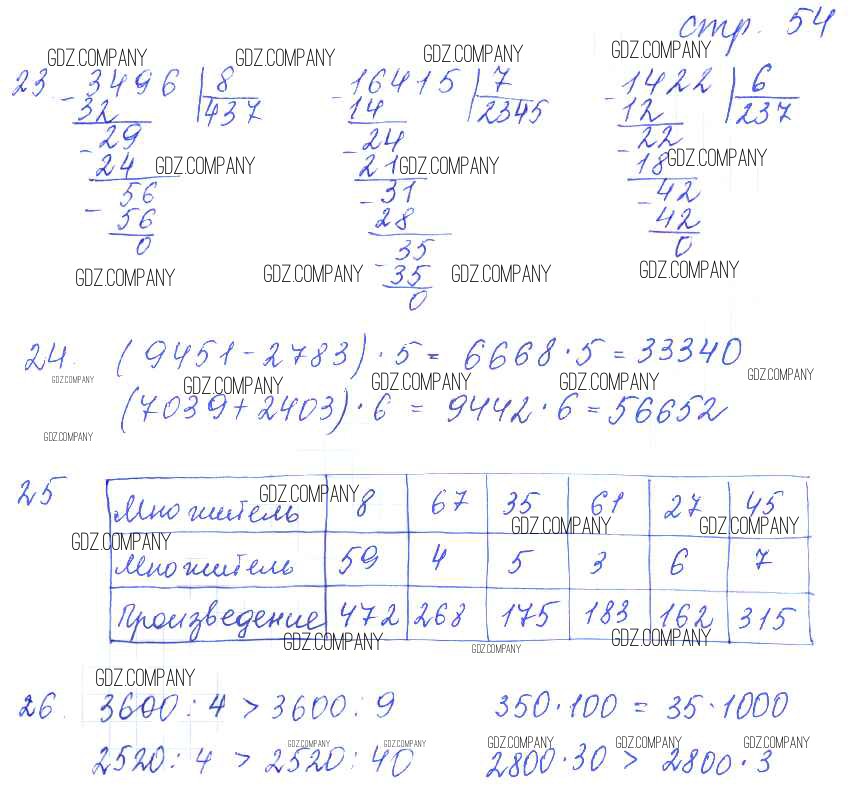 стр. 54
GDZ.COMPANY GDZ.COMPANY GDZ.COMPANY GDZ.COMPANY
23. 3496 | 8 16415 | 7 1422 | 6
- 32 437 - 14 2345 - 12 237
29 24 22
- 24 - 21 - 18
GDZ.COMPANY GDZ.COMPANY GDZ.COMPANY
56 31 42
- 56 - 28 - 42
0 35 0
- 35
0
GDZ.COMPANY GDZ.COMPANY GDZ.COMPANY GDZ.COMPANY
24. (9451 - 2783) · 5 = 6668 · 5 = 33340
GDZ.COMPANY GDZ.COMPANY GDZ.COMPANY GDZ.COMPANY GDZ.COMPANY
(7039 + 2403) · 6 = 9442 · 6 = 56652
GDZ.COMPANY
25 Множитель 8 67 35 61 27 45
GDZ.COMPANY GDZ.COMPANY GDZ.COMPANY
GDZ.COMPANY
Множитель 59 4 5 3 6 7
Произведение 472 268 175 183 162 315
GDZ.COMPANY GDZ.COMPANY GDZ.COMPANY
GDZ.COMPANY
26. 3600 : 4 > 3600 : 9 350 · 100 = 35 · 1000
2520 : 4 > 2520 : 40 2800 · 30 > 2800 · 3
GDZ.COMPANY GDZ.COMPANY GDZ.COMPANY GDZ.COMPANY GDZ.COMPANY